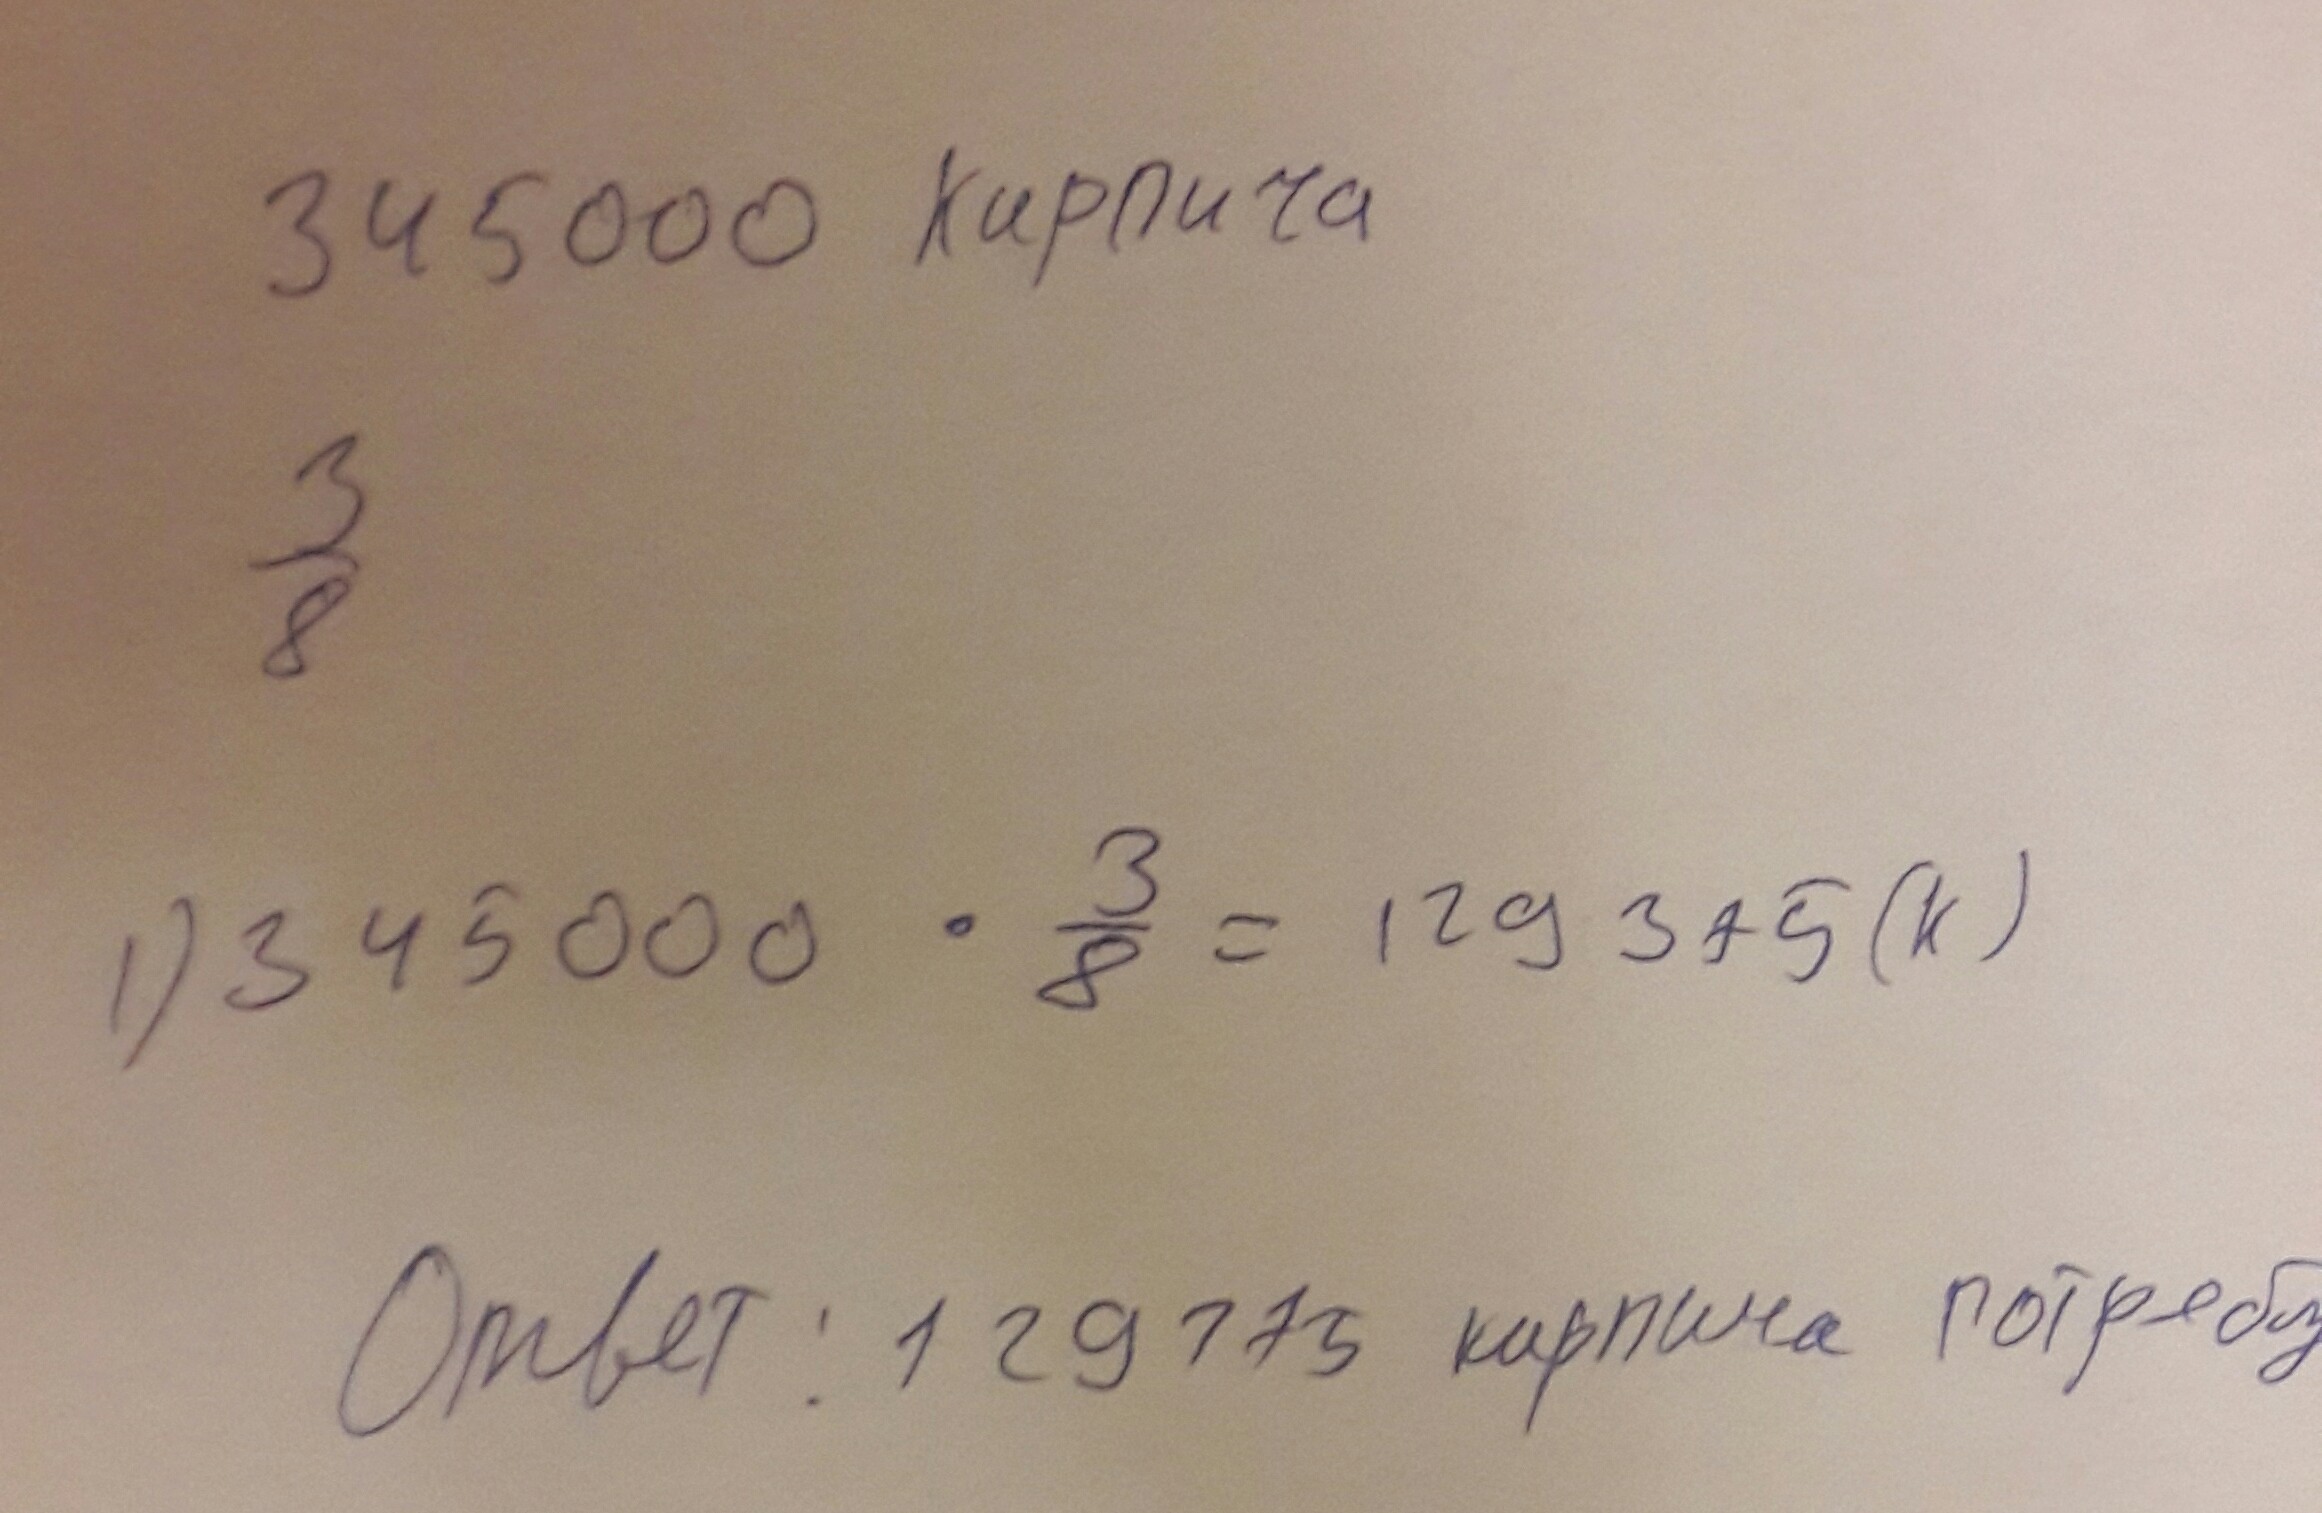 345000 кирпича
3
8
1) 345000 · 3/8 = 129375 (к)
Ответ: 129375 кирпича потребу